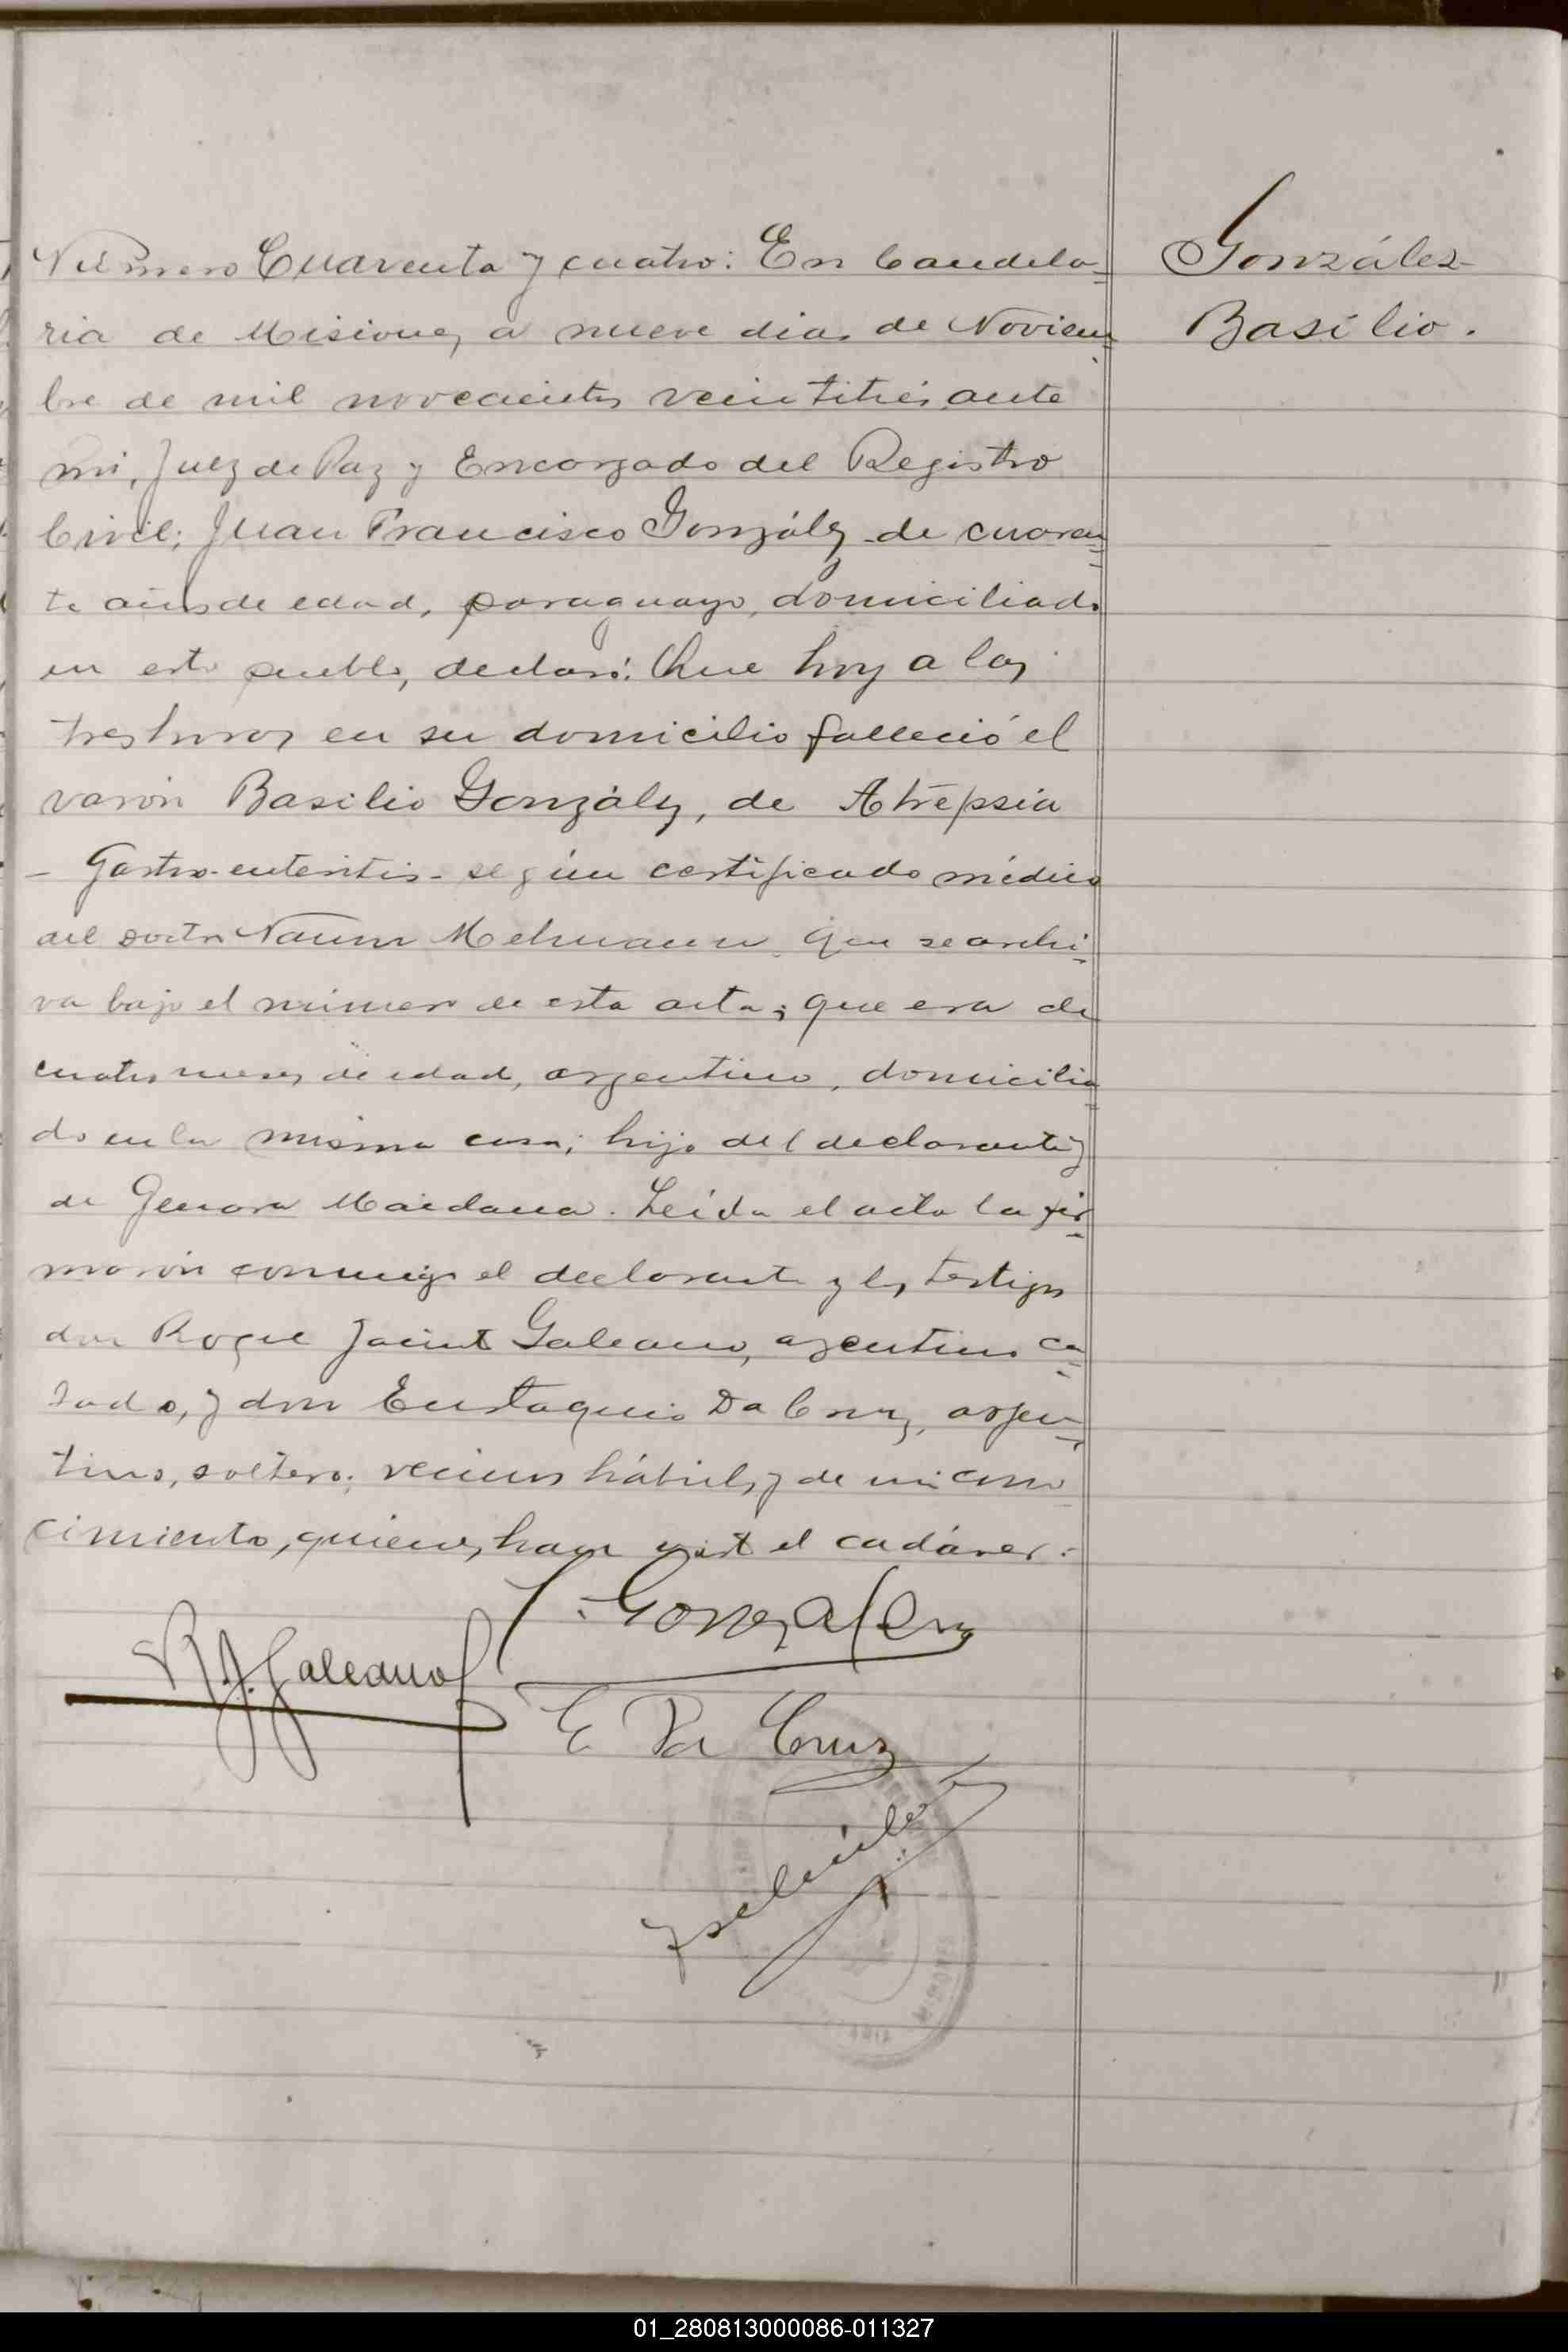 González
Basilio.
Número Cuarenta y cuatro: En Candela-
ria de Misiones, a nueve dias de Noviem-
bre de mil novecientos veintitrés, ante
mi, Juez de Paz y Encargado del Registro
Civil; Juan Francisco González de cuaren-
ta años de edad, paraguayo, domiciliado
en este pueblo, declaró: Que hoy a las
tres horas en su domicilio falleció el
varón Basilio González, de Atrepsia
- Gastro-enteritis - según certificado médico
del doctor Naum Mehmann, que se archi-
va bajo el número de esta acta; que era de
cuatro meses de edad, argentino, domicilia
do en la misma casa; hijo del declarante y
de Genara Maidana. Leída el acta la fir-
marón conmigo el declarante y los testigos
don Roque Jacinto Galeano, argentino ca-
sado, y don Eustaquio Da Cruz, argen-
tino, soltero; vecinos hábiles y de mi cono
cimiento, quienes han visto el cadáver.
J. Gonzales
R J. Galeano
E Da Cruz
MISIONES
01_280813000086-011327